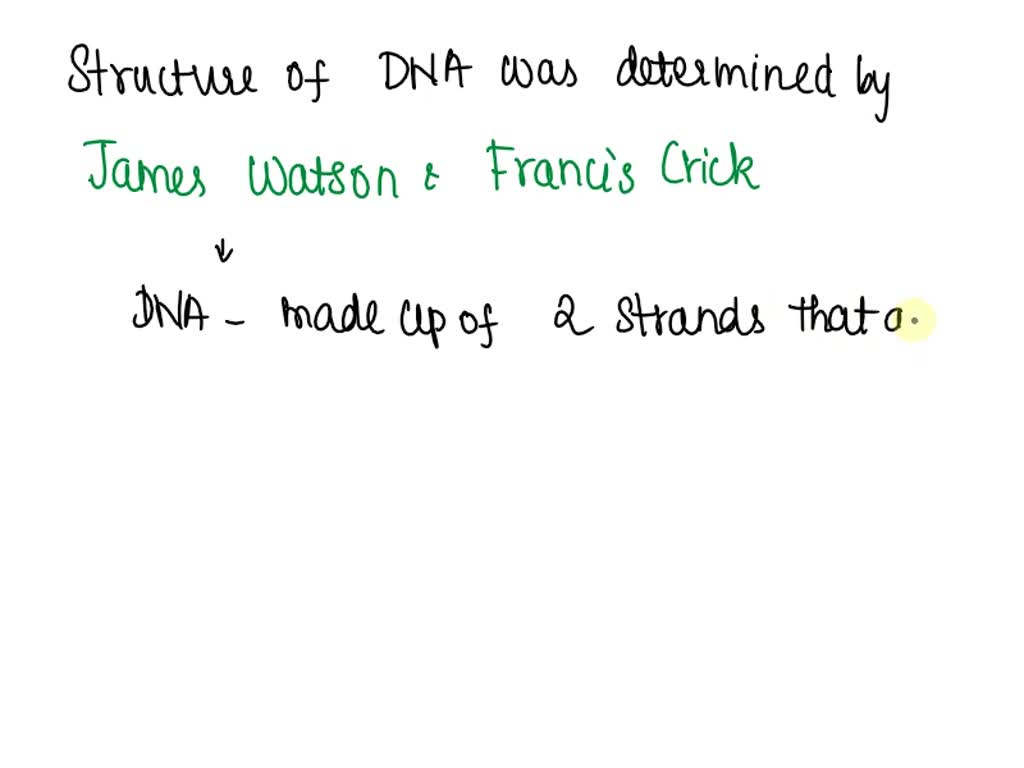 Structure of DNA was determined by
James Watson & Francis Crick
↓
DNA - made up of 2 strands that a